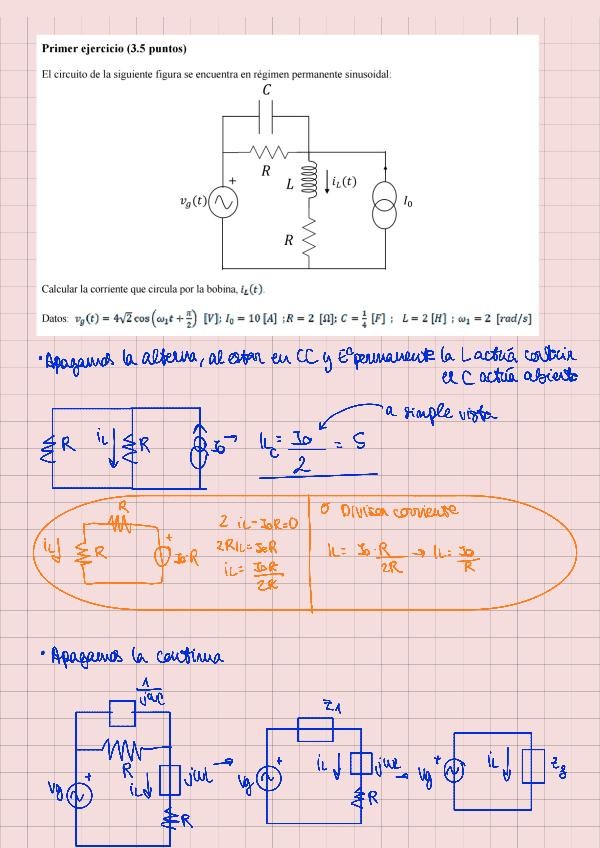 Primer ejercicio (3.5 puntos)
El circuito de la siguiente figura se encuentra en régimen permanente sinusoidal:
C
R
+
v_g(t)
L
i_L(t)
I_0
R
Calcular la corriente que circula por la bobina, i_L(t).
Datos: v_g(t) = 4√2 cos(ω_1t + π/2) [V]; I_0 = 10 [A] ; R = 2 [Ω]; C = 1/4 [F] ; L = 2 [H] ; ω_1 = 2 [rad/s]
• Apagamos la alterna, al estar en CC y Eº permanente la L actúa
el C actúa abierto
R
iL
R
Io
→
iL_C = Io/2 = 5
a simple vista
R
iL
R
+
Io·R
2 iL - IoR=0
2RiL = IoR
iL = IoR/2R
o Divisor corriente
iL = Io · R/2R → iL = Io/R
• Apagamos la continua
1/jωC
R
+
Vg
iL
jωL
R
→
Z1
+
Vg
iL
jωL
R
→
+
Vg
iL